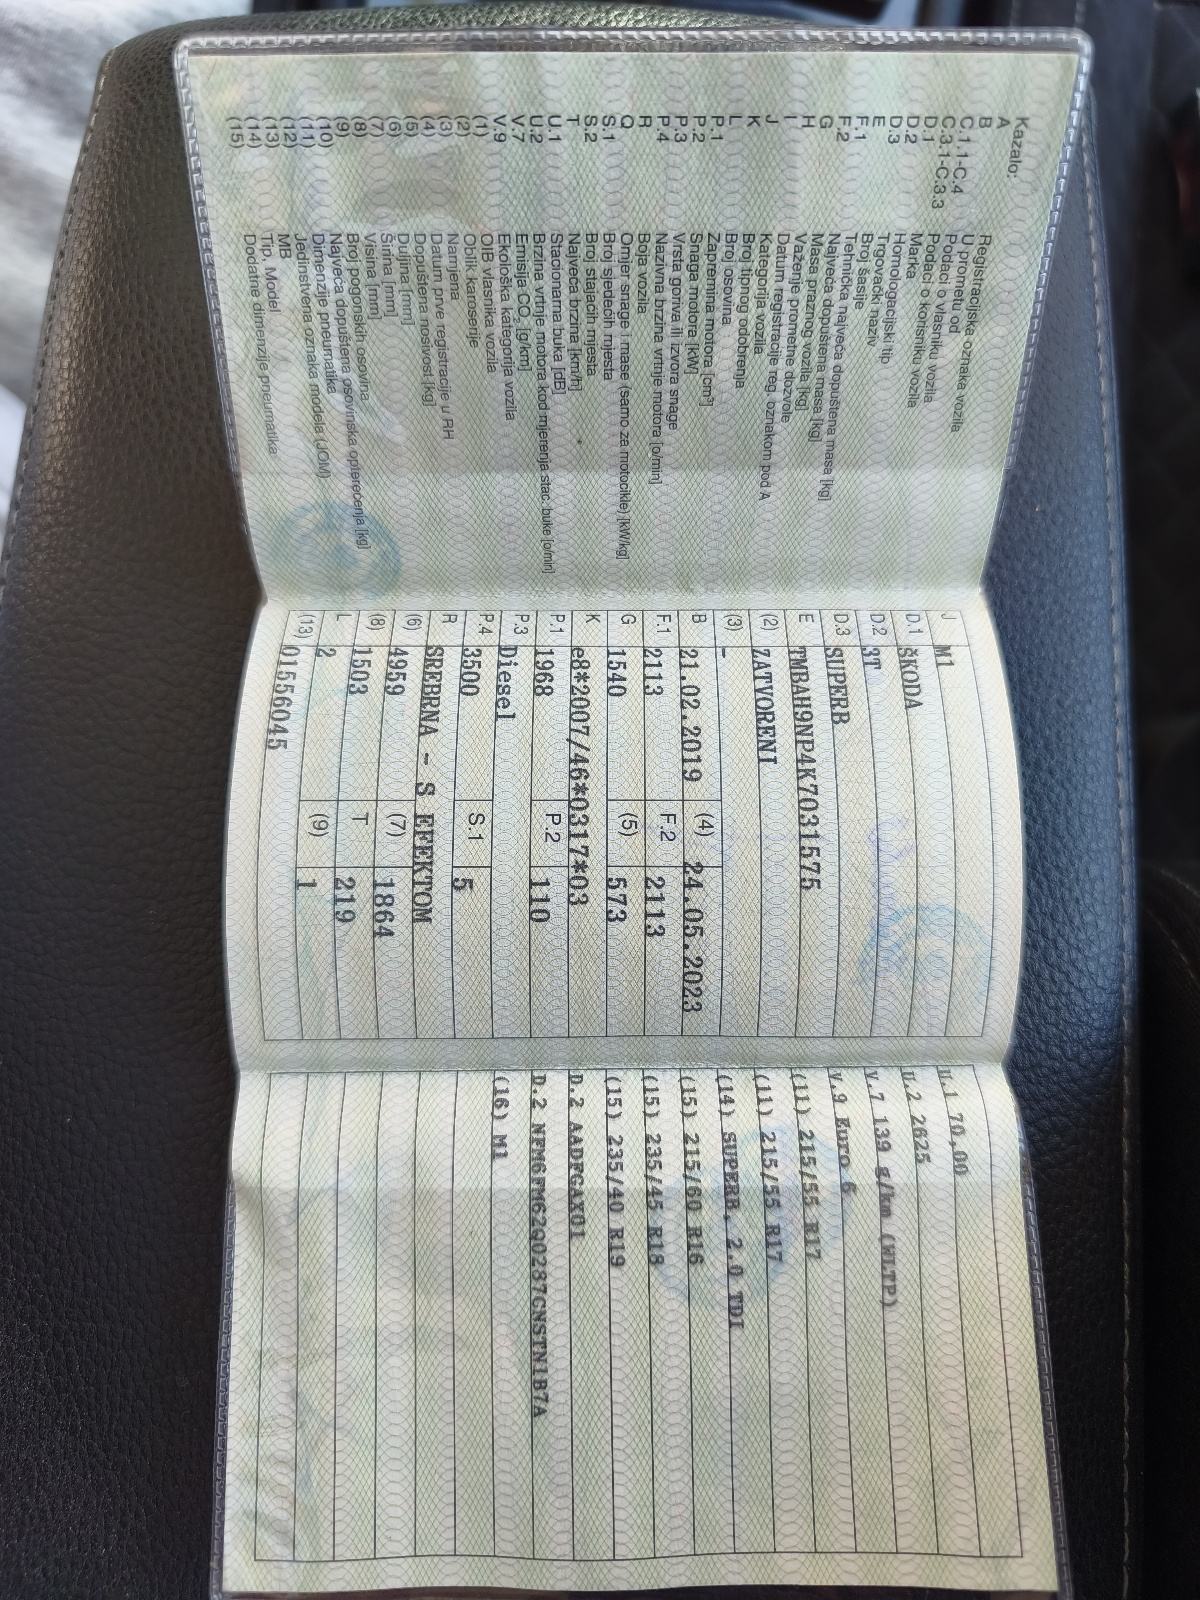 Kazalo:
A Registracijska oznaka vozila
B U prometu od
C.1.1-C.4 Podaci o vlasniku vozila
C.3.1-C.3.3 Podaci o korisniku vozila
D.1 Marka
D.2 Homologacijski tip
D.3 Trgovački naziv
E Broj šasije
F.1 Tehnička najveća dopuštena masa [kg]
F.2 Najveća dopuštena masa [kg]
G Masa praznog vozila [kg]
H Važenje prometne dozvole
I Datum registracije reg. oznakom pod A
J Kategorija vozila
K Broj tipnog odobrenja
L Broj osovina
P.1 Zapremina motora [cm³]
P.2 Snaga motora [kW]
P.3 Vrsta goriva ili izvora snage
P.4 Nazivna brzina vrtnje motora [o/min]
R Boja vozila
Q Omjer snage i mase (samo za motocikle) [kW/kg]
S.1 Broj sjedećih mjesta
S.2 Broj stajaćih mjesta
T Najveća brzina [km/h]
U.1 Stacionarna buka [dB]
U.2 Brzina vrtnje motora kod mjerenja stac. buke [o/min]
V.7 Emisija CO₂ [g/km]
V.9 Ekološka kategorija vozila
(1) OIB vlasnika vozila
(2) Oblik karoserije
(3) Namjena
(4) Datum prve registracije u RH
(5) Dopuštena nosivost [kg]
(6) Duljina [mm]
(7) Širina [mm]
(8) Visina [mm]
(9) Broj pogonskih osovina
(10) Najveća dopuštena osovinska opterećenja [kg]
(11) Dimenzije pneumatika
(12) Jedinstvena oznaka modela (JOM)
(13) MB
(14) Tip, Model
(15) Dodatne dimenzije pneumatika
J M1
D.1 ŠKODA
D.2 3T
D.3 SUPERB
E TMBAH9NP4K7031575
(2) ZATVORENI
(3) -
B 21.02.2019 (4) 24.05.2023
F.1 2113 F.2 2113
G 1540 (5) 573
K e8*2007/46*0317*03
P.1 1968 P.2 110
P.3 Diesel
P.4 3500 S.1 5
R SREBRNA - S EFEKTOM
(6) 4959 (7) 1864
(8) 1503 T 219
L 2 (9) 1
(13) 01556045
U.1 70,00
U.2 2625
V.7 139 g/km (WLTP)
V.9 Euro 6
(11) 215/55 R17
(11) 215/55 R17
(14) SUPERB, 2.0 TDI
(15) 215/60 R16
(15) 235/45 R18
(15) 235/40 R19
D.2 AADFGAX01
D.2 NFM6FM62Q0287CNSTN1B7A
(16) M1